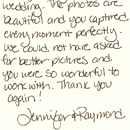 wedding. The photos are
beautiful and you captured
every moment perfectly.
We could not have asked
for better pictures and
you were so wonderful to
work with. Thank you
again!
Jennifer & Raymond